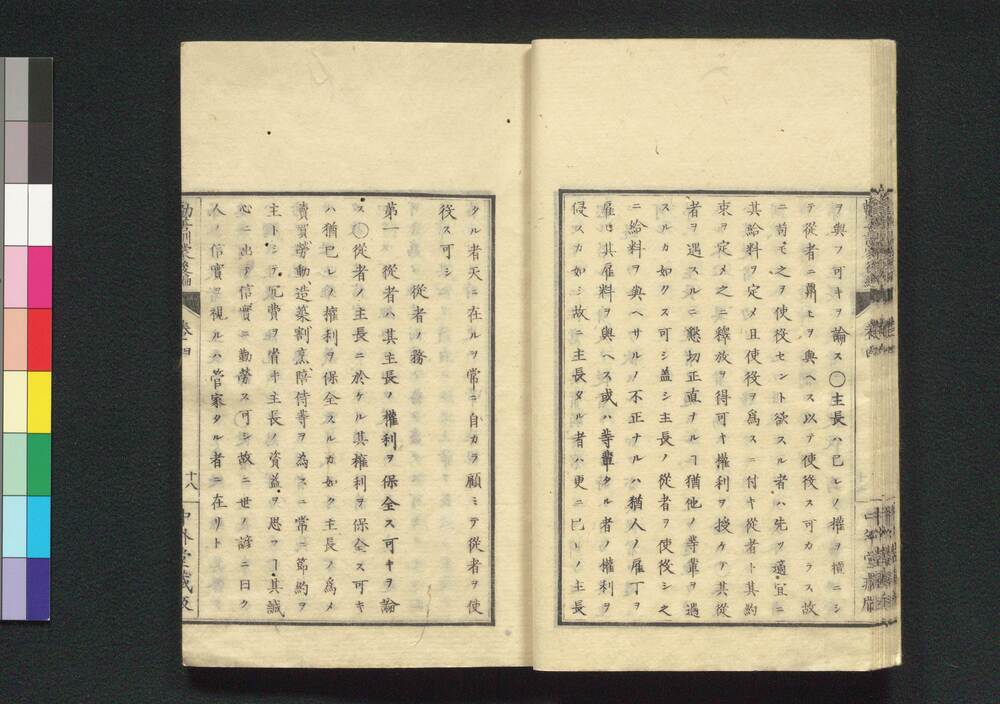 ヲ與フ可キヲ論ス〇主長ハ己レノ權ヲ擅ニシ
テ從者ニ鼻ヒヲ與ヘス以テ使役ス可カラス故
ニ苟モ之ヲ使役セント欲スル者ハ先ツ適宜ニ
其給料ヲ定メ且使役ヲ爲スニ付キ從者ト其約
束ヲ定メ之ニ釋放ヲ得可キ權利ヲ授ケテ其從
者ヲ遇スルニ懇切正直ヲ以テスルヿ猶他ノ等輩ヲ遇
スルカ如クス可シ盖シ主長ノ從者ヲ使役シ之
ニ給料ヲ與ヘサルノ不正ナルハ猶人ノ雇丁ヲ
雇ヒ其雇料ヲ與ヘス或ハ等輩タル者ノ權利ヲ
侵スカ如シ故ニ主長タル者ハ更ニ己レノ主長
タル者天ニ在ルヲ常ニ自カラ顧ミテ從者ヲ使
役ス可シ
從者ノ務
第一 從者ハ其主長ノ權利ヲ保全ス可キヲ論
ス〇從者ノ主長ニ於ケル其權利ヲ保全ス可キ
ハ猶己レノ權利ヲ保全スルカ如ク主長ノ爲メ
賣買勞動造築割烹陪侍等ヲ為スニ常ニ節約ヲ
主トシテ冗費ヲ省キ主長ノ資益ヲ思フヿ其誠
心ニ出テ信實ニ勤勞ス可シ故ニ世ノ諺ニ曰ク
人ノ信實ヲ視ルハ管家タル者ニ在リト
勸善訓蒙後編
卷四
十八
中外堂藏版